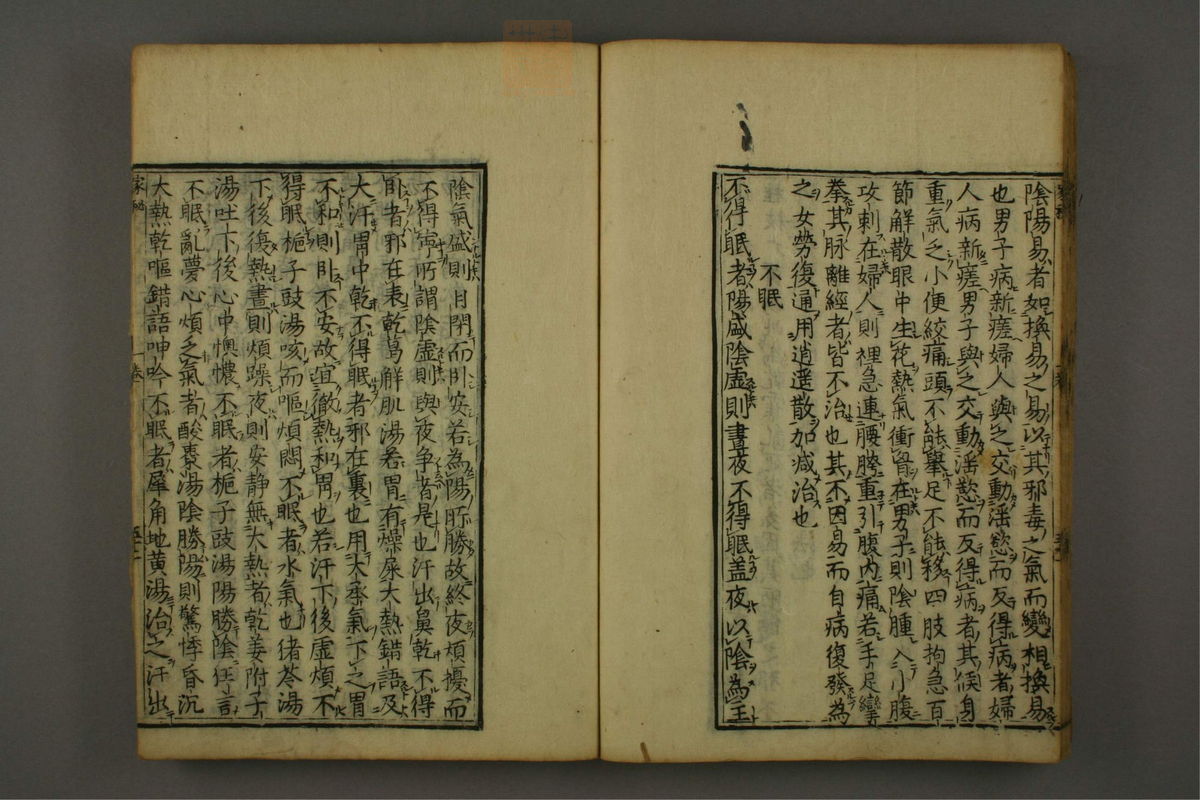 陰陽易者如換易之易以其邪毒之氣而變相換易
也男子病新瘥婦人與之交動淫慾而反得病者婦
人病新瘥男子與之交動淫慾而反得病者其候身
重氣乏小便絞痛頭不能擧足不能移四肢拘急百
節解散眼中生花熱氣衝胷在男子則陰腫入小腹
攻刺在婦人則裡急連腰胯重引腹內痛若手足攣
拳其脉離經者皆不治也其不因易而自病復發為
之女勞復通用逍遥散加减治也
不眠
不得眠者陽盛陰虛則晝夜不得眠盖夜以陰為主
陰氣盛則目閉而卧安若為陽所勝故終夜煩擾而
不得寧所謂陰虛則與夜争者是也汗出鼻乾不得
卧者邪在表乾葛解肌湯若胃有燥屎大熱錯語及
大汗胃中乾不得眠者邪在裏也用大承氣下之胃
不和則卧不安故宜徹熱和胃也若汗下後虛煩不
得眠梔子豉湯咳而嘔煩悶不眠者水氣也猪苓湯
下後復熱晝則煩躁夜則安静無大熱者乾姜附子
湯吐下後心中懊憹不眠者梔子豉湯陽勝陰狂言
不眠亂夢心煩乏氣者酸棗湯陰勝陽則驚悸昏沉
大熱乾嘔錯語呻吟不眠者犀角地黄湯治之汗出